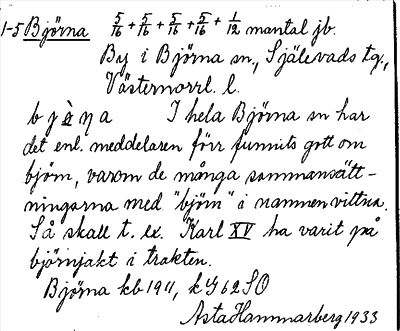 1-5 Björna 5/16 + 5/16 + 5/16 + 5/16 + 1/12 mantal jb.
By i Björna sn, Själevads tg.,
Västernorrl. l.
I hela Björna sn har
det enl. meddelaren förr funnits gott om
björn, varom de många sammansätt-
ningarna med "björn" i namnen vittna.
Så skall t. ex. Karl XV ha varit på
björnjakt i trakten.
Björna kb 1911, k
Asta Hammarberg 1933